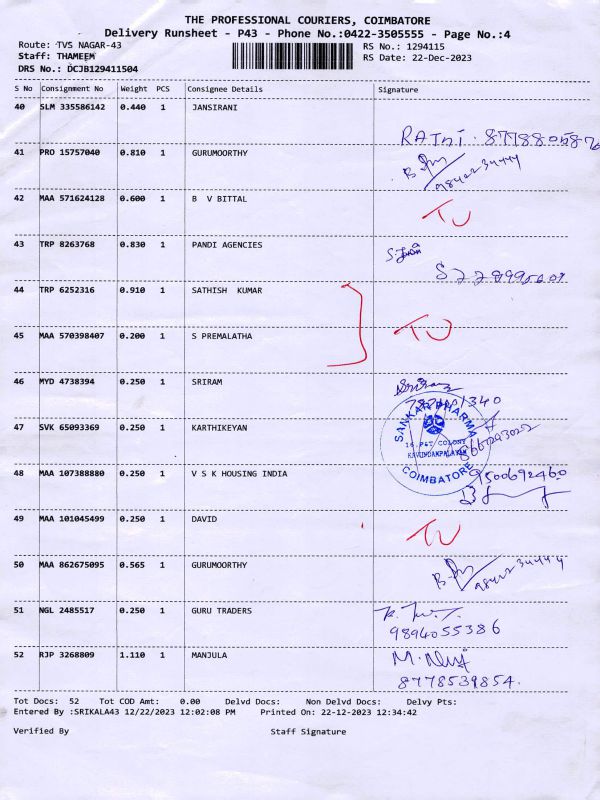 THE PROFESSIONAL COURIERS, COIMBATORE
Delivery Runsheet - P43 - Phone No.:0422-3505555 - Page No.:4
Route: TVS NAGAR-43 RS No.: 1294115
Staff: THAMEEM RS Date: 22-Dec-2023
DRS No.: DCJB129411504
S No Consignment No Weight PCS Consignee Details Signature
40 SLM 335586142 0.440 1 JANSIRANI
41 PRO 15757040 0.810 1 GURUMOORTHY
42 MAA 571624128 0.600 1 B V BITTAL
TU
43 TRP 8263768 0.830 1 PANDI AGENCIES
44 TRP 6252316 0.910 1 SATHISH KUMAR
TU
45 MAA 570398407 0.200 1 S PREMALATHA
46 MYD 4738394 0.250 1 SRIRAM
47 SVK 65093369 0.250 1 KARTHIKEYAN
SANKARI PHARMA
16, P&T COLONY
KAVUNDAMPALAYAM
COIMBATORE
48 MAA 107388880 0.250 1 V S K HOUSING INDIA
9500692460
49 MAA 101045499 0.250 1 DAVID
TU
50 MAA 862675095 0.565 1 GURUMOORTHY
51 NGL 2485517 0.250 1 GURU TRADERS
9894055386
52 RJP 3268809 1.110 1 MANJULA
8778539854.
Tot Docs: 52 Tot COD Amt: 0.00 Delvd Docs: Non Delvd Docs: Delvy Pts:
Entered By :SRIKALA43 12/22/2023 12:02:08 PM Printed On: 22-12-2023 12:34:42
Verified By Staff Signature